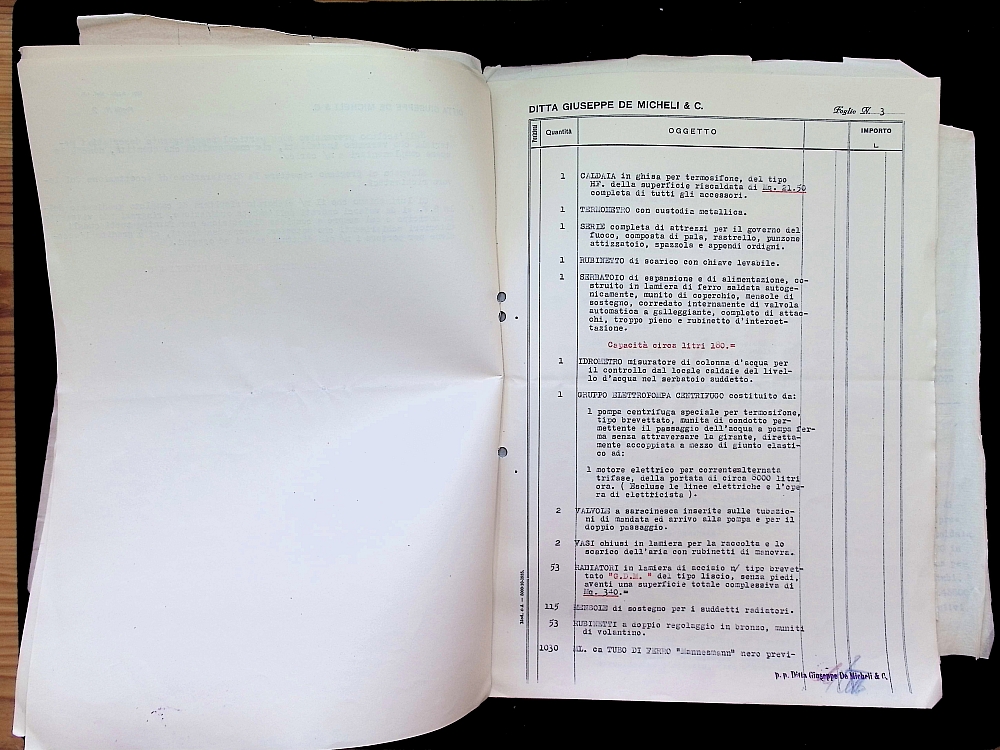 DITTA GIUSEPPE DE MICHELI & C.
Foglio N. 3
Quantità OGGETTO IMPORTO
L.
1 CALDAIA in ghisa per termosifone, del tipo
HF. della superficie riscaldata di Mq. 21.50
completa di tutti gli accessori.
1 TERMOMETRO con custodia metallica.
1 SERIE completa di attrezzi per il governo del
fuoco, composta di pala, rastrello, punzone
attizzatoio, spazzola e appendi ordigni.
1 RUBINETTO di scarico con chiave levabile.
1 SERBATOIO di espansione e di alimentazione, co-
struito in lamiera di ferro saldata autoge-
nicamente, munito di coperchio, mensole di
sostegno, corredato internamente di valvola
automatica a galleggiante, completo di attac-
chi, troppo pieno e rubinetto d'intercet-
tazione.
Capacità circa litri 180.=
1 IDROMETRO misuratore di colonna d'acqua per
il controllo dal locale caldaie del livel-
lo d'acqua nel serbatoio suddetto.
1 GRUPPO ELETTROPOMPA CENTRIFUGO costituito da:
1 pompa centrifuga speciale per termosifone,
tipo brevettato, munita di condotto per-
mettente il passaggio dell'acqua a pompa fer-
ma senza attraversare la girante, diretta-
mente accoppiata a mezzo di giunto elasti-
co ad:
1 motore elettrico per correntealternata
trifase, della portata di circa litri
ora. ( Escluse le linee elettriche e l'ope-
ra di elettricista ).
2 VALVOLE a saracinesca inserite sulle tubazio-
ni di mandata ed arrivo alla pompa e per il
doppio passaggio.
2 VASI chiusi in lamiera per la raccolta e lo
scarico dell'aria con rubinetti di manovra.
53 RADIATORI in lamiera di acciaio n/ tipo brevet-
tato "G.D.M. " del tipo liscio, senza piedi,
aventi una superficie totale complessiva di
Mq. 340.=
115 MENSOLE di sostegno per i suddetti radiatori.
53 RUBINETTI a doppio regolaggio in bronzo, muniti
di volantino.
1030 ML. ca TUBO DI FERRO "Mannesmann" nero previ-
p. p. Ditta Giuseppe De Micheli & C.